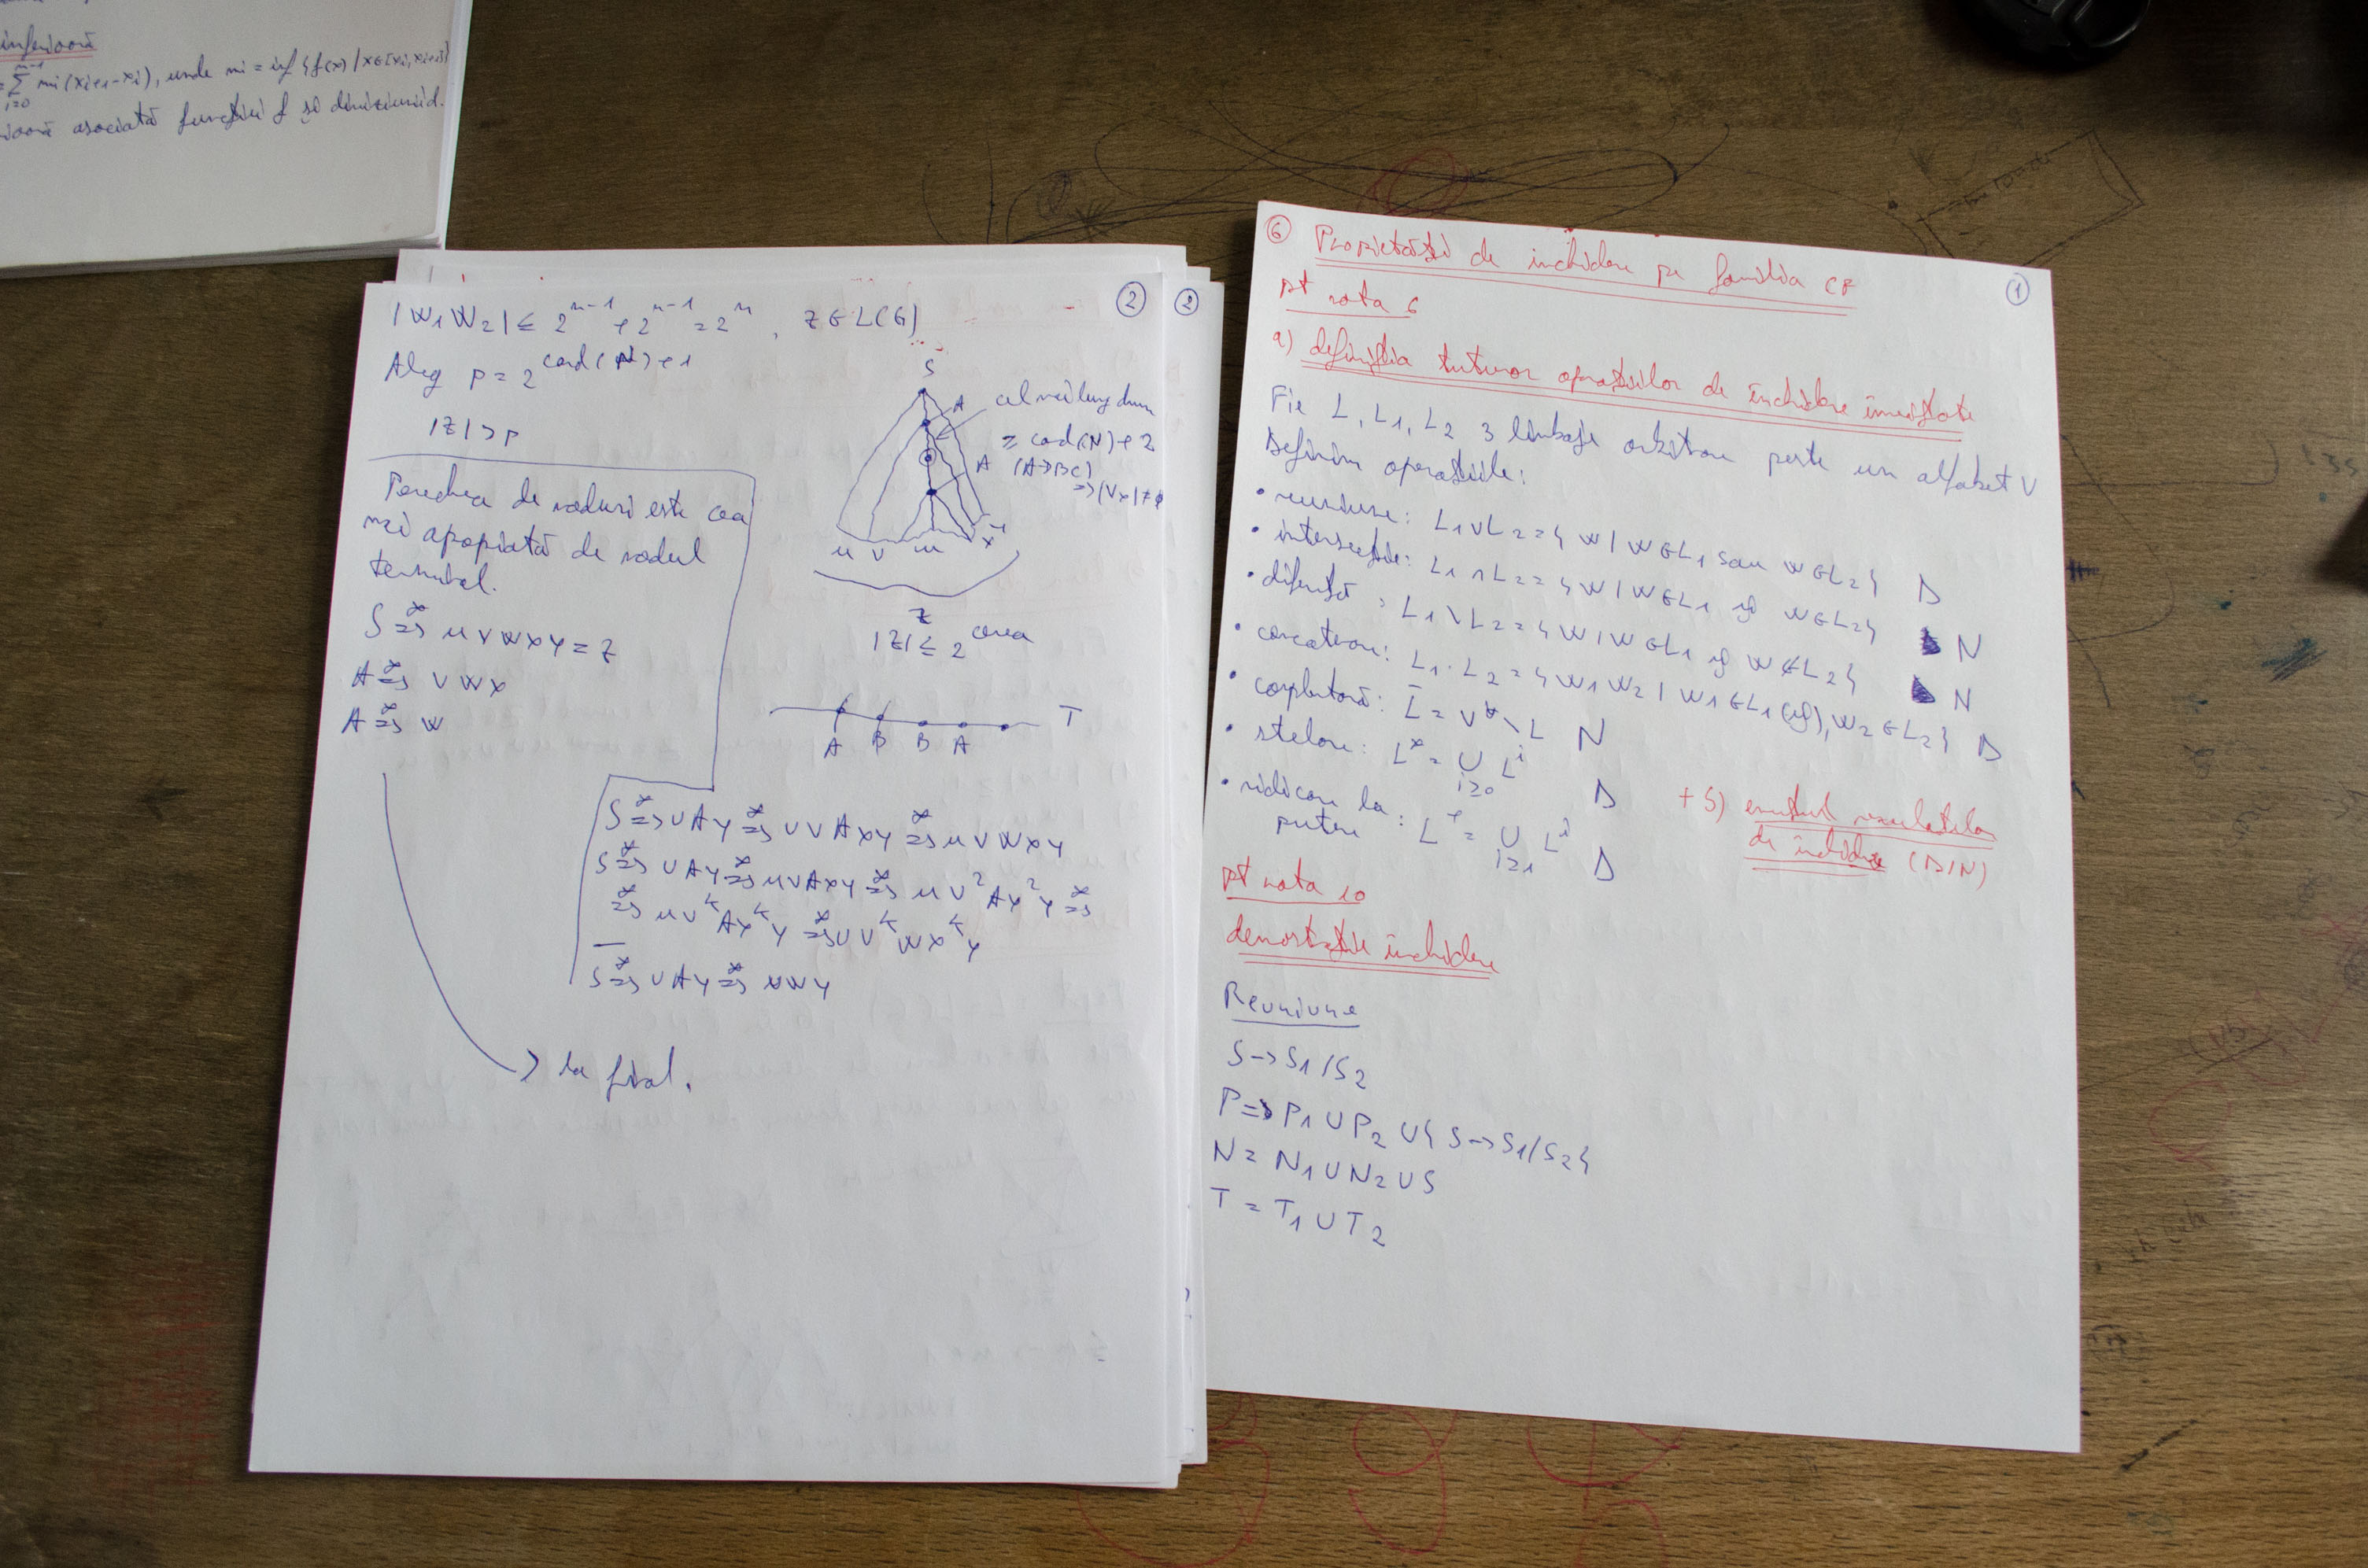 inferioară
= Σ mi(xi+1-xi), unde mi = inf{f(x) | x∈[xi,xi+1]}
n-1
i=0
asociată funcției f și diviziunii d.
②
②
|W1W2| ≤ 2^{n-1} + 2^{n-1} = 2^n, z∈L(G)
Aleg p = 2^{card(N)+1}
|z| > p
Perechea de noduri este cea
mai apropiată de nodul
terminal.
S ⇒* u v w x y = z
A ⇒* v w x
A ⇒* w
S
A
cel mai lung drum
≥ card(N)+2
A
(A→BC)
⇒ |vx| ≠ ϕ
u v w x y
z
|z| ≤ 2
A B B A
T
S ⇒* u A y ⇒* u v A x y ⇒* u v w x y
S ⇒* u A y ⇒* u v A x y ⇒* u v^2 A x^2 y ⇒*
⇒* u v^k A x^k y ⇒* u v^k w x^k y
S ⇒* u A y ⇒* u w y
la final.
⑥ Propietăți de inchidere pe familia CF
①
pt nota 6
a) definiția tuturor operațiilor de închidere învățate
Fie L, L1, L2 3 limbaje arbitrare peste un alfabet V
Definim operațiile:
• reuniune: L1∪L2 = {w | w∈L1 sau w∈L2} D
• intersecție: L1∩L2 = {w | w∈L1 și w∈L2} N
• diferență: L1\L2 = {w | w∈L1 și w∉L2} N
• concatenare: L1·L2 = {w1w2 | w1∈L1 (și), w2∈L2} D
• complementară: L̅ = V* \ L N
• stelare: L* = ∪ L^i D
i≥0
• ridicare la
putere : L^+ = ∪ L^i D
i≥1
+ b) enunțul rezultatelor
de închidere (D/N)
pt nota 10
demonstrație închidere
Reuniune
S → S1/S2
P => P1 ∪ P2 ∪ {S → S1/S2}
N = N1 ∪ N2 ∪ S
T = T1 ∪ T2